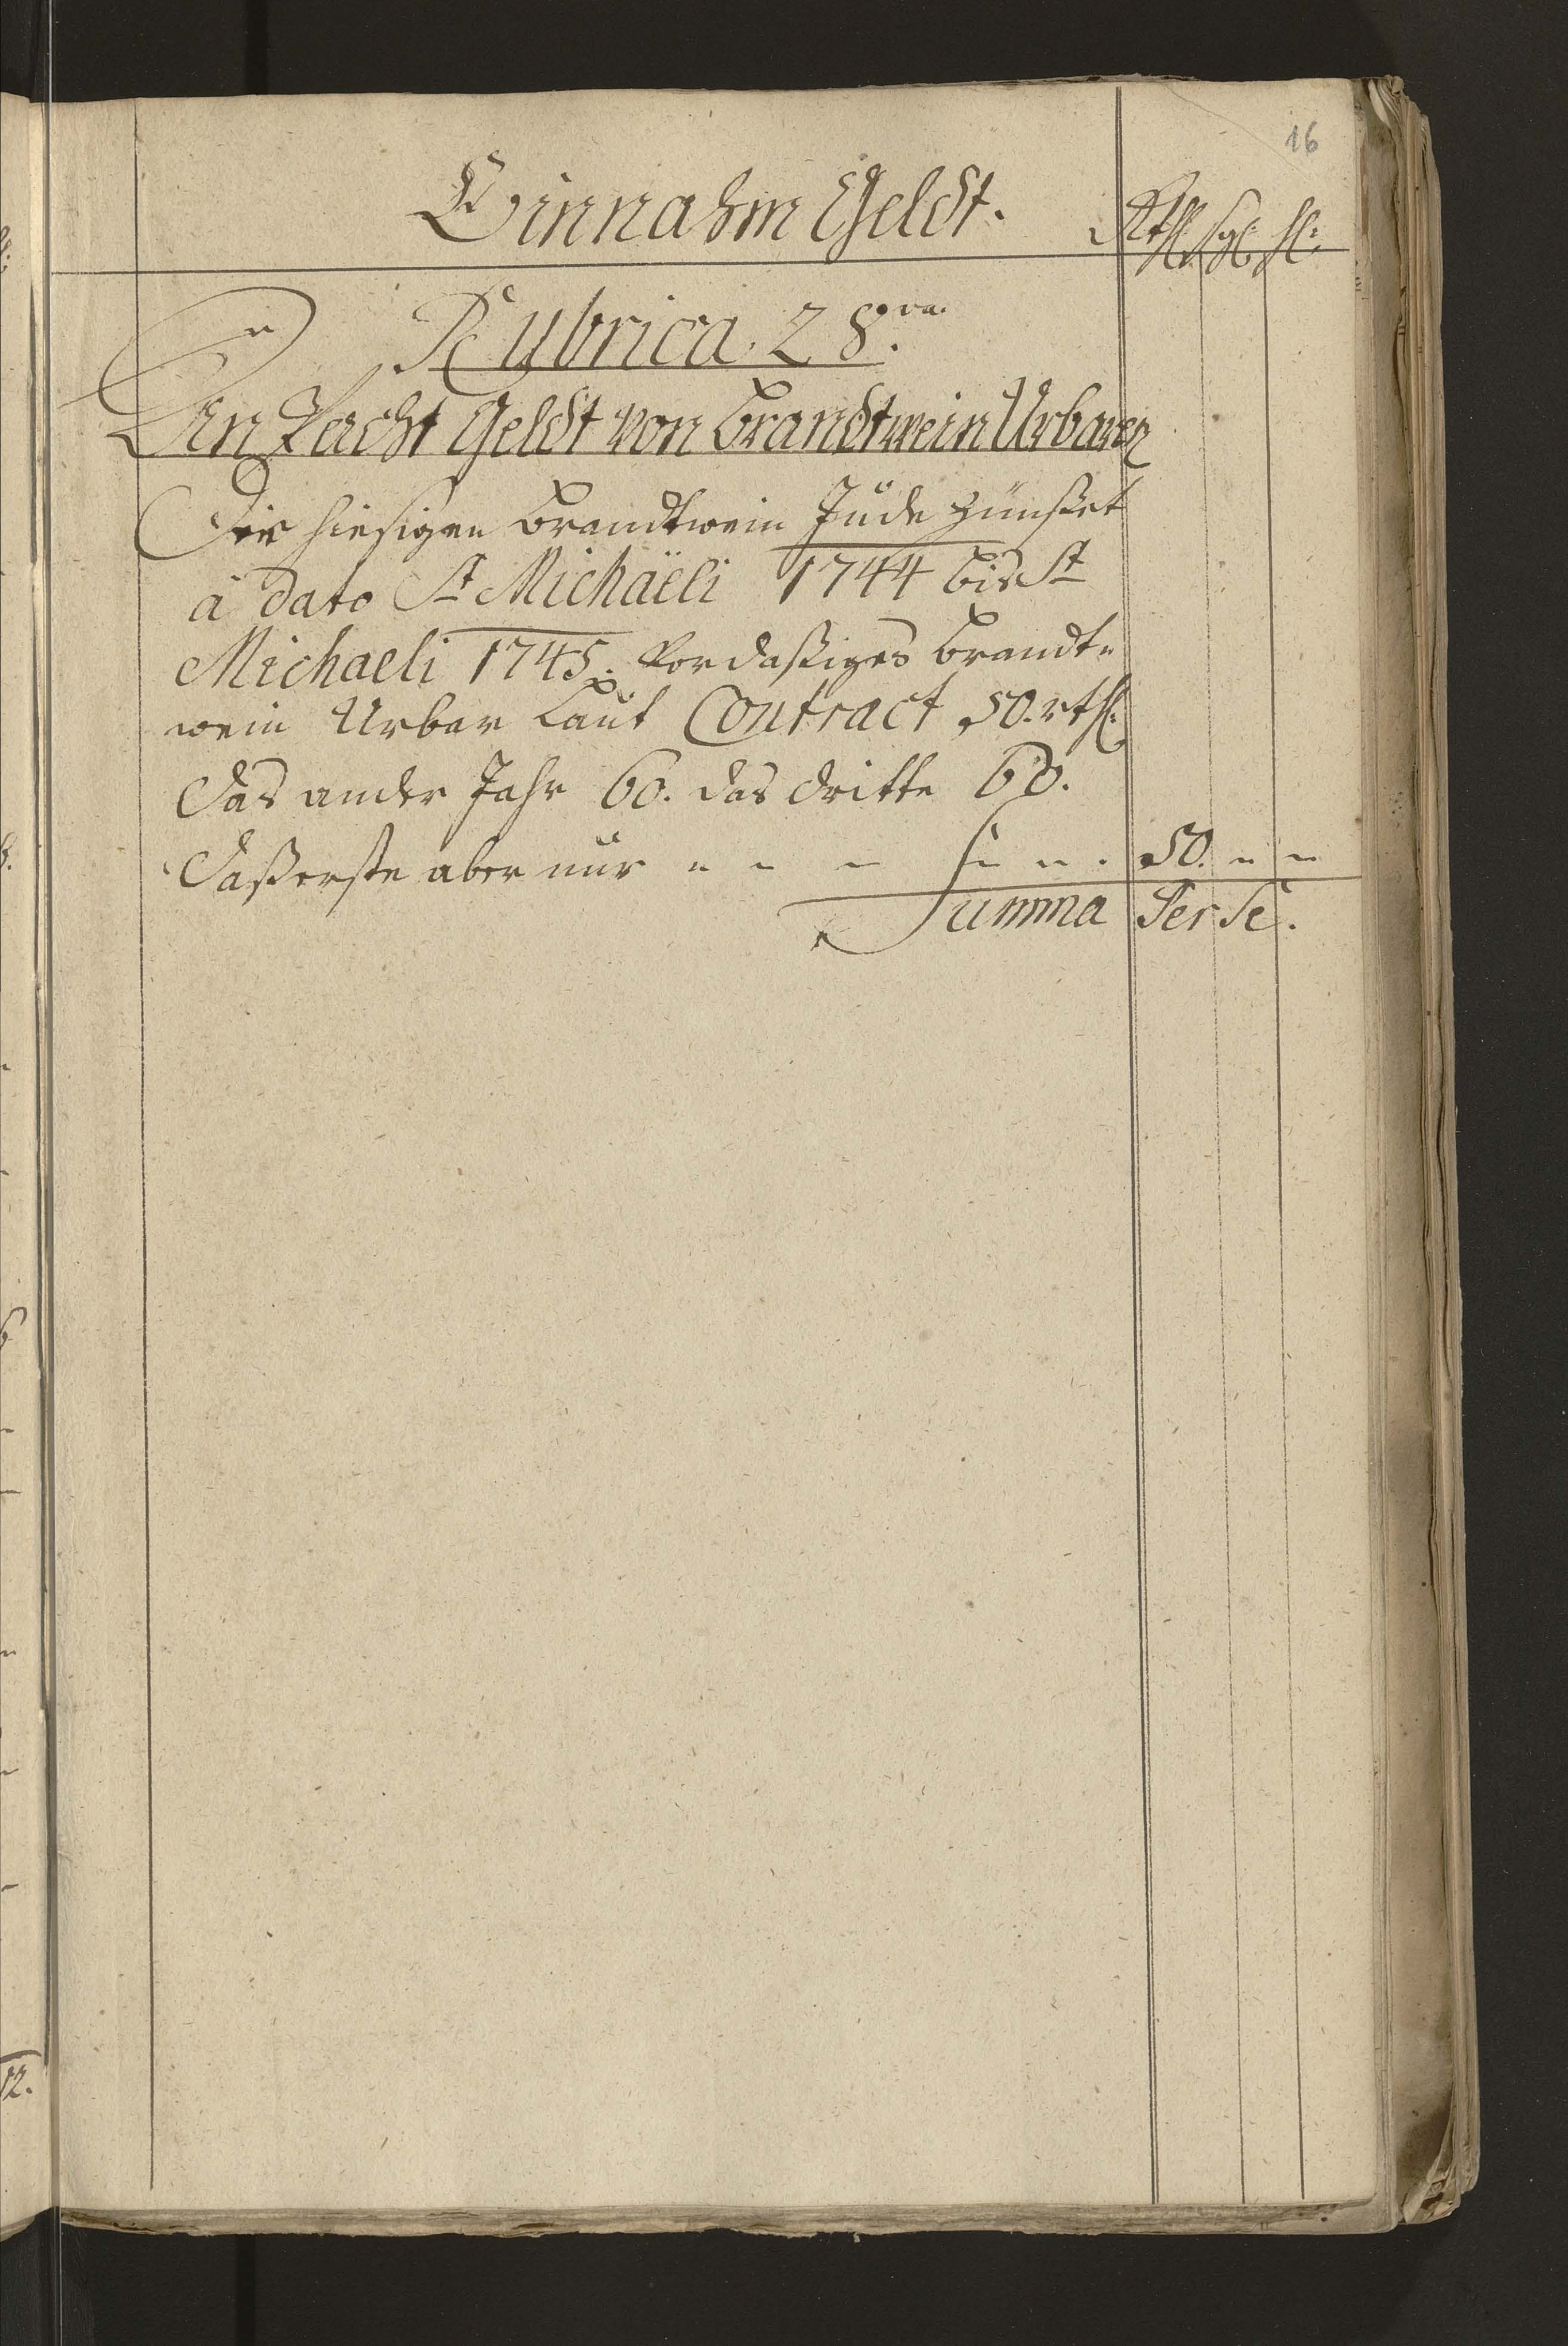 16
Einnahm Geldt.
Rthl: sgl: hl:
Rubrica. 28.va
An Pacht Geldt von Brandtwein Urbaren
Der hiesigen Brandtwein Jude Zünßet
â dato St Michaëli 1744 bis St
Michaeli 1745. vor dasiges Brandt=
wein Urbar Laut Contract 50. rthl:
Das ander Jahr 60. das dritte 60.
Daß erste aber nur 50.
Summa Per Se.
12.